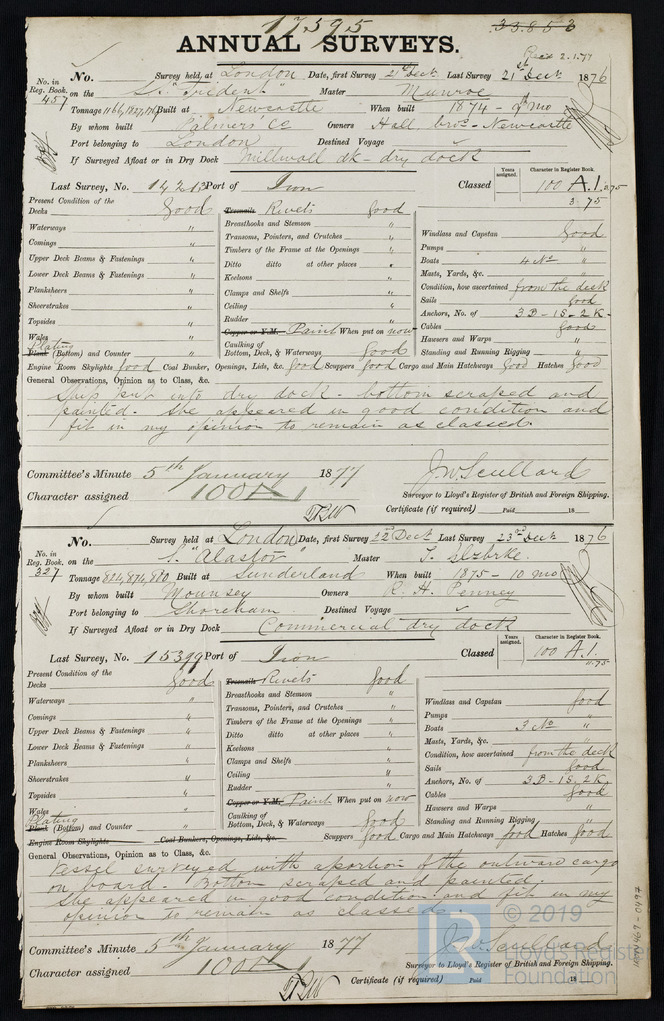 17,595 33.853
ANNUAL SURVEYS.
Recd 2.1.77
No. in Reg. Book. No. Survey held at London Date, first Survey 21st Dect Last Survey 21st Dect 1876
457 on the S. "Trident" Master Munroe
Tonnage 1166,1827, Built at Newcastle When built 1874 - mo
By whom built Palmers' Co Owners Hall bros - Newcastle
Port belonging to London Destined Voyage
If Surveyed Afloat or in Dry Dock Millwall dk - dry dock
Years assigned. Character in Register Book.
Last Survey, No. 14213 Port of Iron Classed 100 A.1. 3.75
Present Condition of the
Decks good
Waterways "
Comings "
Upper Deck Beams & Fastenings "
Lower Deck Beams & Fastenings "
Planksheers "
Sheerstrakes "
Topsides "
Wales "
Plating
Plank (Bottom) and Counter "
Treenails Rivets good
Breasthooks and Stemson "
Transoms, Pointers, and Crutches "
Timbers of the Frame at the Openings "
Ditto ditto at other places "
Keelsons "
Clamps and Shelfs "
Ceiling "
Rudder "
Copper or Y.M. Paint When put on now
Caulking of
Bottom, Deck, & Waterways Good
Windlass and Capstan Good
Pumps "
Boats 4 No "
Masts, Yards, &c. "
Condition, how ascertained from the deck
Sails Good
Anchors, No. of 3 B - 1 S - 2 K -
Cables Good
Hawsers and Warps "
Standing and Running Rigging "
Engine Room Skylights good Coal Bunker, Openings, Lids, &c. good Scuppers good Cargo and Main Hatchways good Hatches good
General Observations, Opinion as to Class, &c.
Ship put into dry dock - bottom scraped and
painted. She appeared in good condition and
fit in my opinion to remain as classed.
Committee's Minute 5th January 1877 J.W. Scullard
Character assigned 100 A 1 Surveyor to Lloyd's Register of British and Foreign Shipping.
Certificate (if required) Paid 18
No. in Reg. Book. No. Survey held at London Date, first Survey 22d Dect Last Survey 23rd Dect 1876
327 on the S. "Alastor" Master
Tonnage 824,874, Built at Sunderland When built 1875 - 10 mo
By whom built Mounsey Owners R. H. Penney
Port belonging to Shoreham Destined Voyage
If Surveyed Afloat or in Dry Dock Commercial dry dock
Years assigned. Character in Register Book.
Last Survey, No. 15399 Port of Iron Classed 100 A.1. 11.75
Present Condition of the
Decks Good
Waterways "
Comings "
Upper Deck Beams & Fastenings "
Lower Deck Beams & Fastenings "
Planksheers "
Sheerstrakes "
Topsides "
Wales "
Plating
Plank (Bottom) and Counter "
Treenails Rivets good
Breasthooks and Stemson "
Transoms, Pointers, and Crutches "
Timbers of the Frame at the Openings "
Ditto ditto at other places "
Keelsons "
Clamps and Shelfs "
Ceiling "
Rudder "
Copper or Y.M. Paint When put on now
Caulking of
Bottom, Deck, & Waterways Good
Windlass and Capstan Good
Pumps "
Boats 3 No "
Masts, Yards, &c. "
Condition, how ascertained from the deck
Sails Good
Anchors, No. of 3 B - 1 S. 2 K.
Cables Good
Hawsers and Warps "
Standing and Running Rigging "
Engine Room Skylights Coal Bunkers, Openings, Lids, &c. Scuppers good Cargo and Main Hatchways good Hatches good
General Observations, Opinion as to Class, &c.
Vessel surveyed with a portion of the outward cargo
on board. Bottom scraped and painted.
She appeared in good condition and fit in my
opinion to remain as classed.
Committee's Minute 5th January 1877 J.W. Scullard
Character assigned 100 A 1 Surveyor to Lloyd's Register of British and Foreign Shipping.
Certificate (if required) Paid 18
© 2019
Lloyd's Register
Foundation